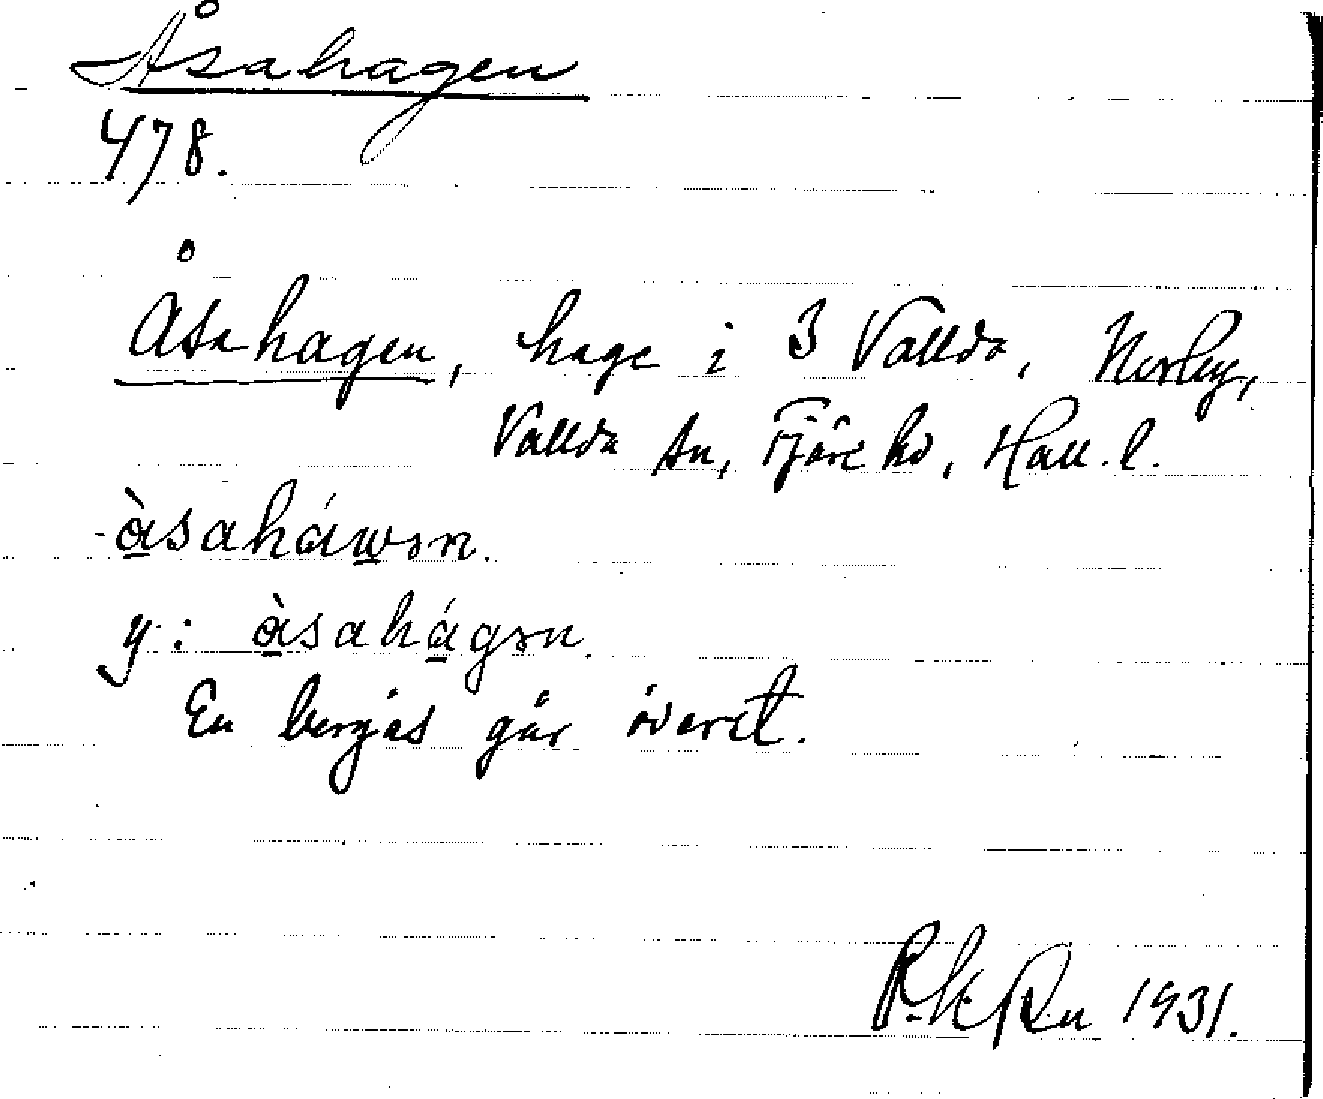 Åsahagen
478.
Åsahagen, hage i 3 Vallda, Norbeg,
Vallda sn, Fjäre hd, Hall. l.
àsaháwən.
y: àsahágən.
En bergås går över det.
1931.